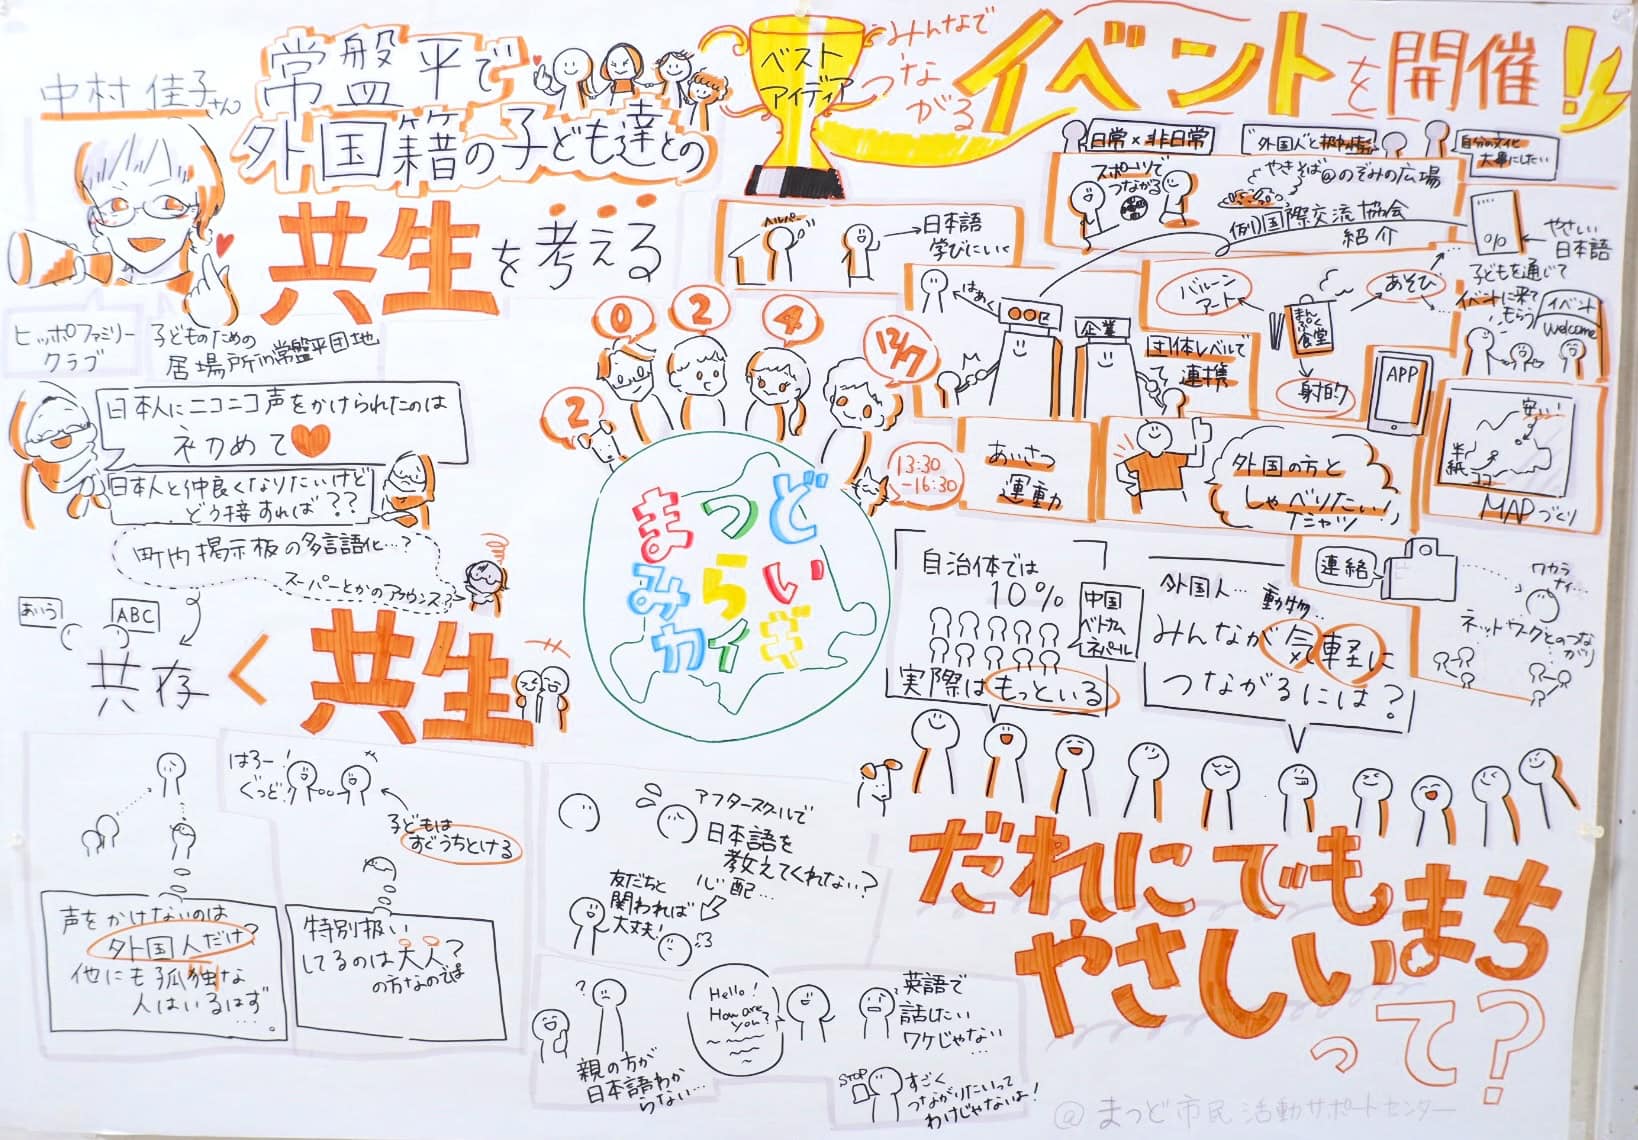 中村 佳子さん
常盤平で
外国籍の子ども達との
共生を考える
ヒッポファミリー
クラブ
子どものための
居場所in常盤平団地
日本人にニコニコ声をかけられたのは
初めて
日本人と仲良くなりたいけど
どう接すれば??
町内掲示板の多言語化…?
スーパーとかのアナウンス?
あいう
ABC
共存<共生
声をかけないのは
外国人だけ?
他にも孤独な
人はいるはず
…。
はろー!
ぐっど!
子どもは
すぐうちとける
特別扱い
してるのは大人?
の方なのでは
ベスト
アイディア
みんなで
つな
がる
イベントを開催!
ヘルパー
日本語
学びにいく
日常×非日常
スポーツで
つながる
"外国人"と扱わない
自分の文化
大事にしたい
やきそば@のぞみの広場
例)国際交流協会
紹介
やさしい
日本語
はあく
企業
団体レベルで
連携
バルーン
アート
まんぷく
食堂
あそび
射的
子どもを通じて
イベントに来て
もらう
イベント
Welcome
APP
安い
半紙
ココ
MAPづくり
あいさつ
運動
外国の方と
しゃべりたい!
Tシャツ
0
2
4
2
12/7
13:30
-16:30
まつど
みらい
カイギ
自治体では
10%
中国
ベトナム
ネパール
実際はもっといる
外国人…動物…
みんなが気軽に
つながるには?
連絡
ワカラ
ナイ…
ネットワークとのつな
がり
だれにでも
やさしいまち
って?
アフタースクールで
日本語を
教えてくれない?
心配…
友だちと
関われば
大丈夫!
?
親の方が
日本語わか
らない…
Hello!
How are
you?
英語で
話したい
ワケじゃない
…
STOP
すごく
つながりたいって
わけじゃないよ!
@まつど市民活動サポートセンター